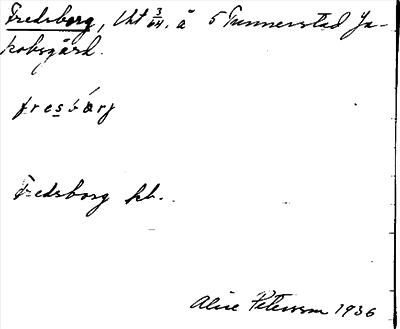 Fredsborg, lht 3/64. å 5 Tunnerstad Ja-
kobsgård.
fresbärj
Fredsborg kb.
Alice Petersson 1936